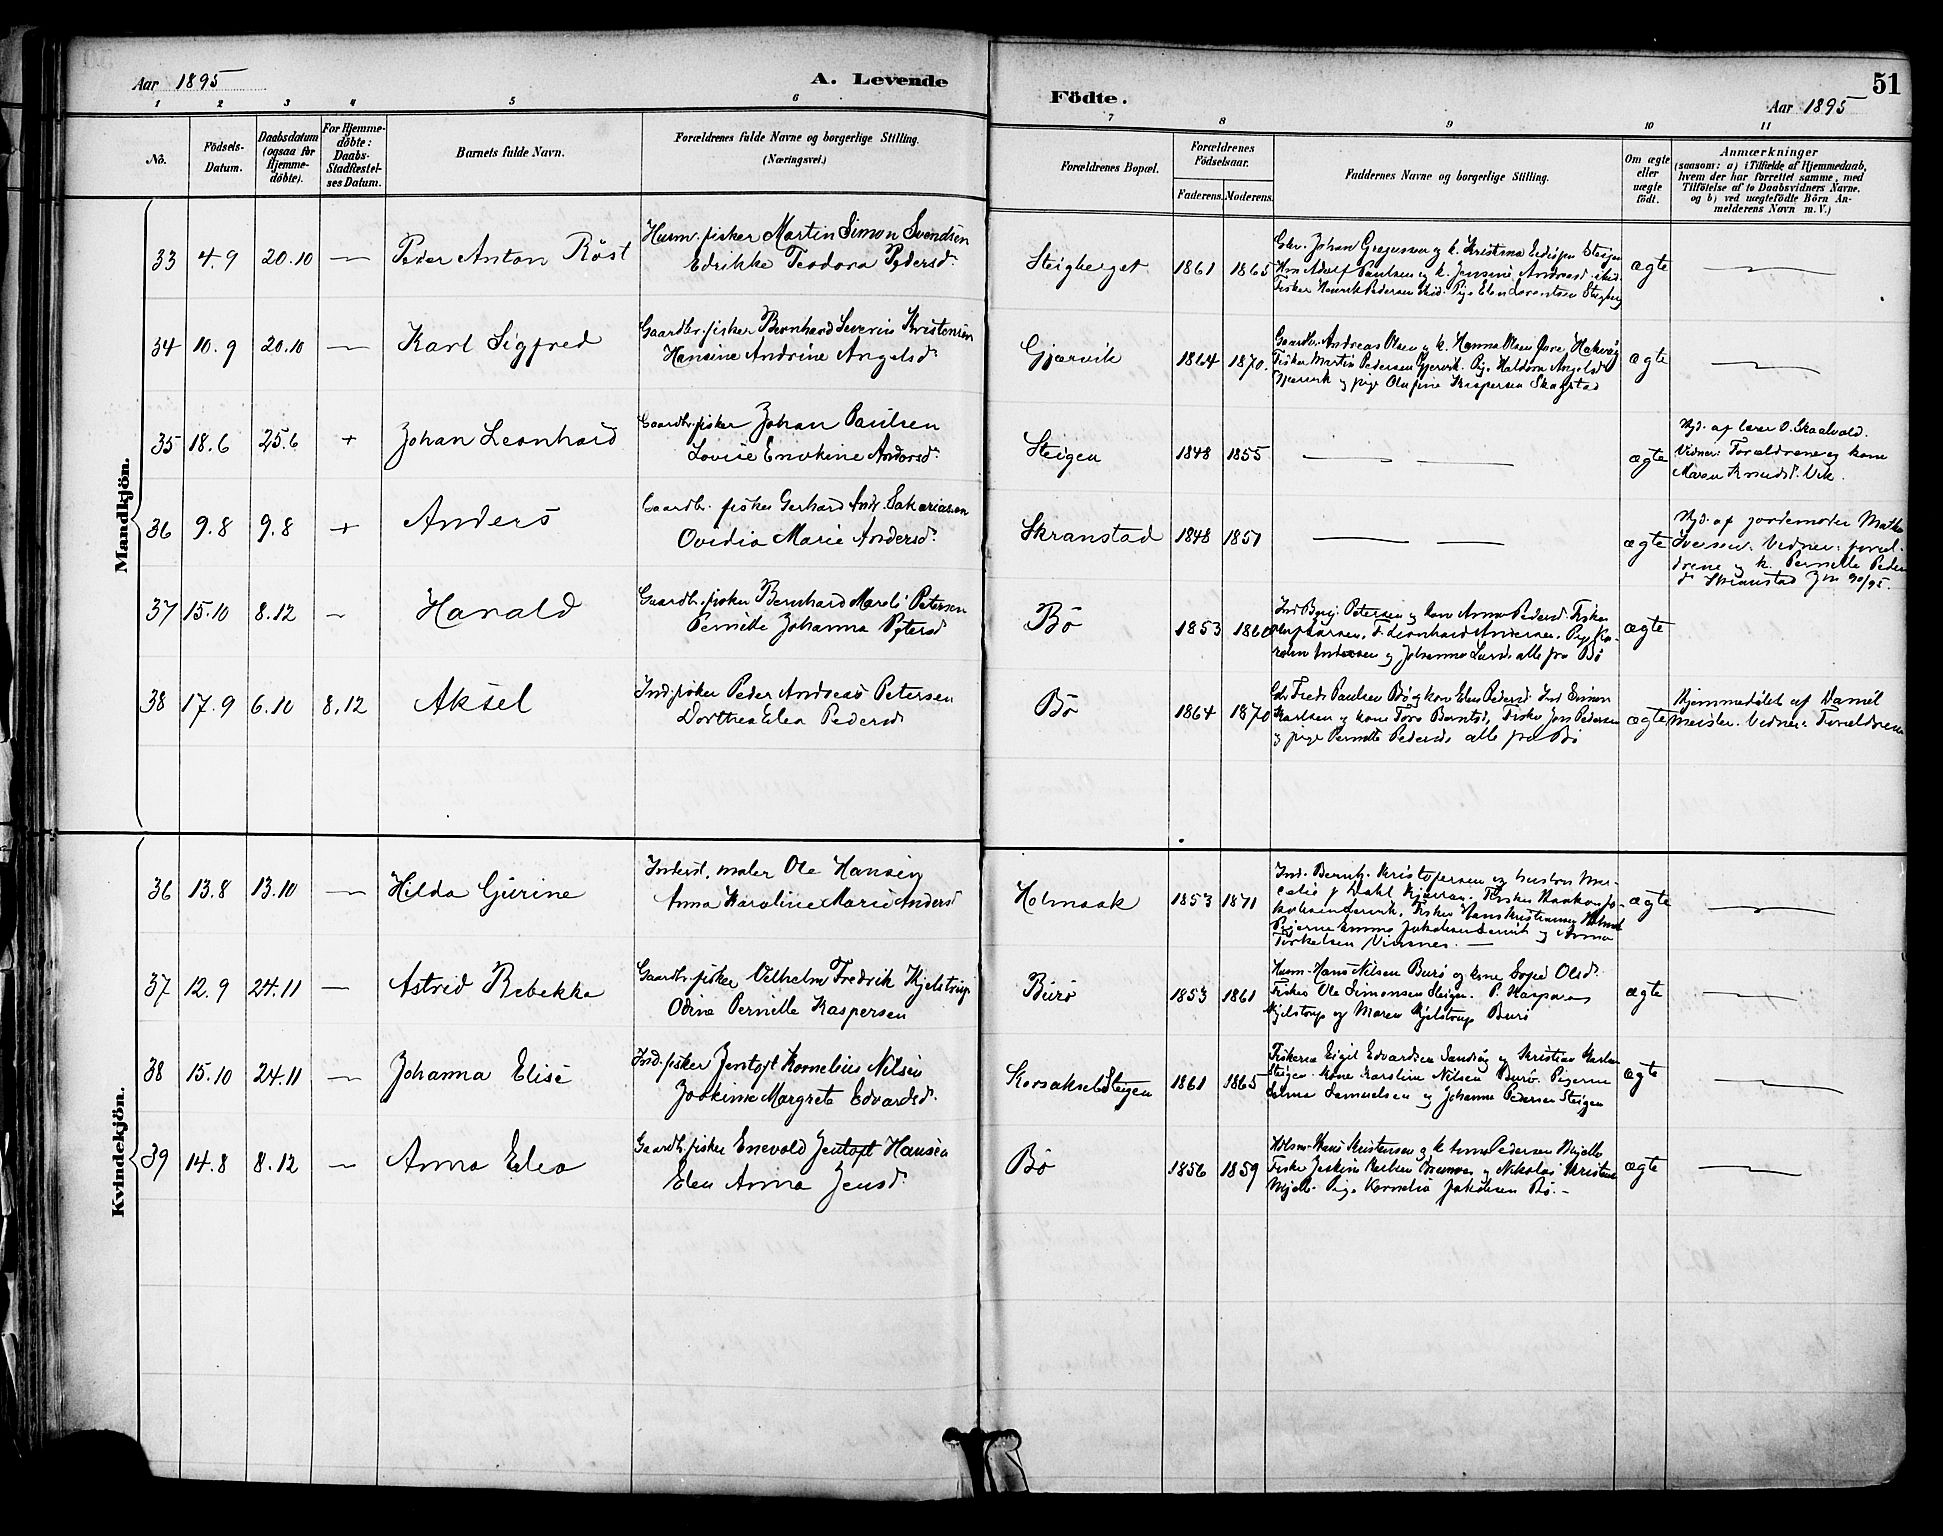 Aar 1895
A. Levende
Födte.
Aar 1895
51
1 2 3 4 5 6 7 8 9 10 11
No.
Födsels-Datum.
Daabsdatum (ogsaa for Hjemme-döbte).
For Hjemme-döbte: Daabs-Stadfæstel-ses Datum.
Barnets fulde Navn.
Forældrenes fulde Navne og borgerlige Stilling.
(Næringsvei.)
Forældrenes Bopæl.
Forældrenes Födselsaar.
Faderens. Moderens.
Faddernes Navne og borgerlige Stilling.
Om ægte eller uægte födt.
Anmærkninger
(saasom: a) i Tilfælde af Hjemmedaab,
hvem der har forrettet samme, med
Tilföielse af to Daabsvidners Navne.
og b) ved uægtefödte Börn An-
melderens Navn m. V.)
Mandkjön.
33 4.9 20.10 — Peder Anton Röst
Husm. fisker Martin Simon Svendsen
Edrikke Teodora Pedersd.
Steigberget 1861 1865
Johan Gregussen og k. Kristina Steigen
Adolf Paulsen og k. Jensine Andreasd.
Fisker Henrik Pedersen Pige Elen Lorentsen Steigberg
ægte —
34 10.9 20.10 — Karl Sigfred
Gaardbr. fisker Bernhard Severin Kristensen
Hansine Andrine Angelsd.
Gjærvik 1864 1870.
Gaardbr. Andreas Olsen og k. Hanna Olsen
Fisker Martin Pedersen Gjervik. Pige Angelsd.
Gjærvik og pige Olufine Kaspersen Skagstad
ægte —
35 18.6 25.6 + Johan Leonhard
Gaardbr. fisker Johan Paulsen
Lovise Enokine Andersd.
Steigen 1848 1855 — — ægte
Hjd. af lærer O. Skaalvold.
Vidner: Forældrene og kone
Maren Knudsd. Vik.
36 9.8 9.8 + Anders
Gaardbr. fisker Gerhard Andr. Sakariasen
Ovidia Marie Andersd.
Skranstad 1848 1851 — — ægte
Hjd. af jordemoder
Iversen. Vidner: foræl-
drene og k. Pernille Peders-
d. Skranstad
37 15.10 8.12 — Harald
Gaardbr. fisker Bernhard Mareli Petersen
Pernille Johanna Petersd
Bø 1853 1860
Ind. Petersen og kone Anna Pedersd. Fisker
Larsen, F. Leonhard Andersen. Pige Ka-
Andersen og Johanna Larsd. alle fra Bø
ægte
38 17.9 6.10 8.12 Aksel
Ind. fisker Peder Andreas Petersen
Dorthea Elea Pedersd
Bø 1864 1870
Fredr. Paulsen Bø og kon Elen Pedersd. Ind. Simon
Karlsen og kone Berntsd, Fisker Jens Pedersen
og pige Pernille Pedersd. alle fra Bø
ægte
Hjemmedøbt af Daniel
Meisler. Vidner: Forældrene
Kvindekjön.
36 13.8 13.10 — Hilda Gjurine
Inderst. maler Ole Hansen
Anna Karoline Marie Andersd
Holmaak 1853 1871
Ind. Bernh. Kristofersen og hustru
Dahl Fisker Haakon
Fisker Hans Kristiansen
Pigerne Emma Jakobsen og Anna
Torkelsen Vinsnes. —
ægte —
37 12.9 24.11 — Astrid Rebekka
Gaardbr. fisker Vilhelm Fredrik Kjelstrup
Odine Pernille Kaspersen
Burø 1853 1861
Husm. Hans Nilsen Burø og kone Olsd.
Fisker Ole Simonsen Steigen. P.
Kjelstrup og Maren Kjelstrup Burø
ægte —
38 15.10 24.11 — Johanna Elise
Ind. fisker Jentoft Kornelius Nilsen
Joakime Margrete Edvardsd.
Korsaksel Steigen 1861 1865
Fiskerne Eigil Edvardsen Sandvåg og Kristian
Steigen. Kone Karoline Nilsen Burø. Pigerne
Samuelsen og Johanna Pedersen Steigen
ægte —
39 14.8 8.12 — Anna Elea
Gaardb. fisker Enevold Jentoft Hansen
Elen Anna Jensd.
Bø 1856 1859
Hans Kristensen og k. Anna Pedersen Mjelle
Fisker og Nikolai
Mjelle. Pige Kornelia Jakobsen Bø. —
ægte —